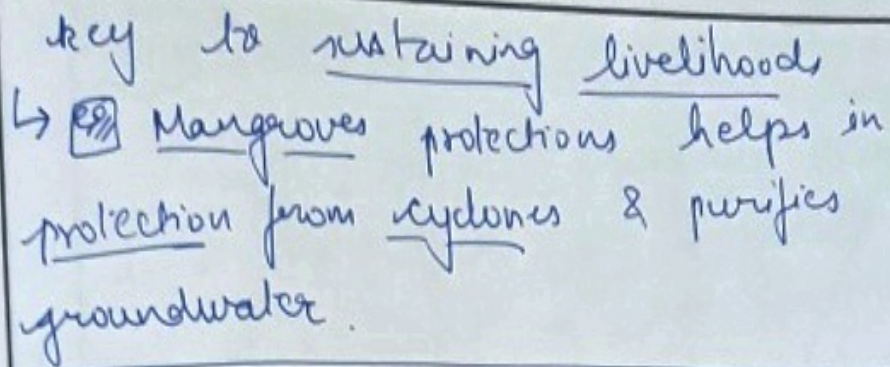 key to sustaining livelihoods
↳ Mangroves protections helps in
protection from cyclones & purifies
groundwater.